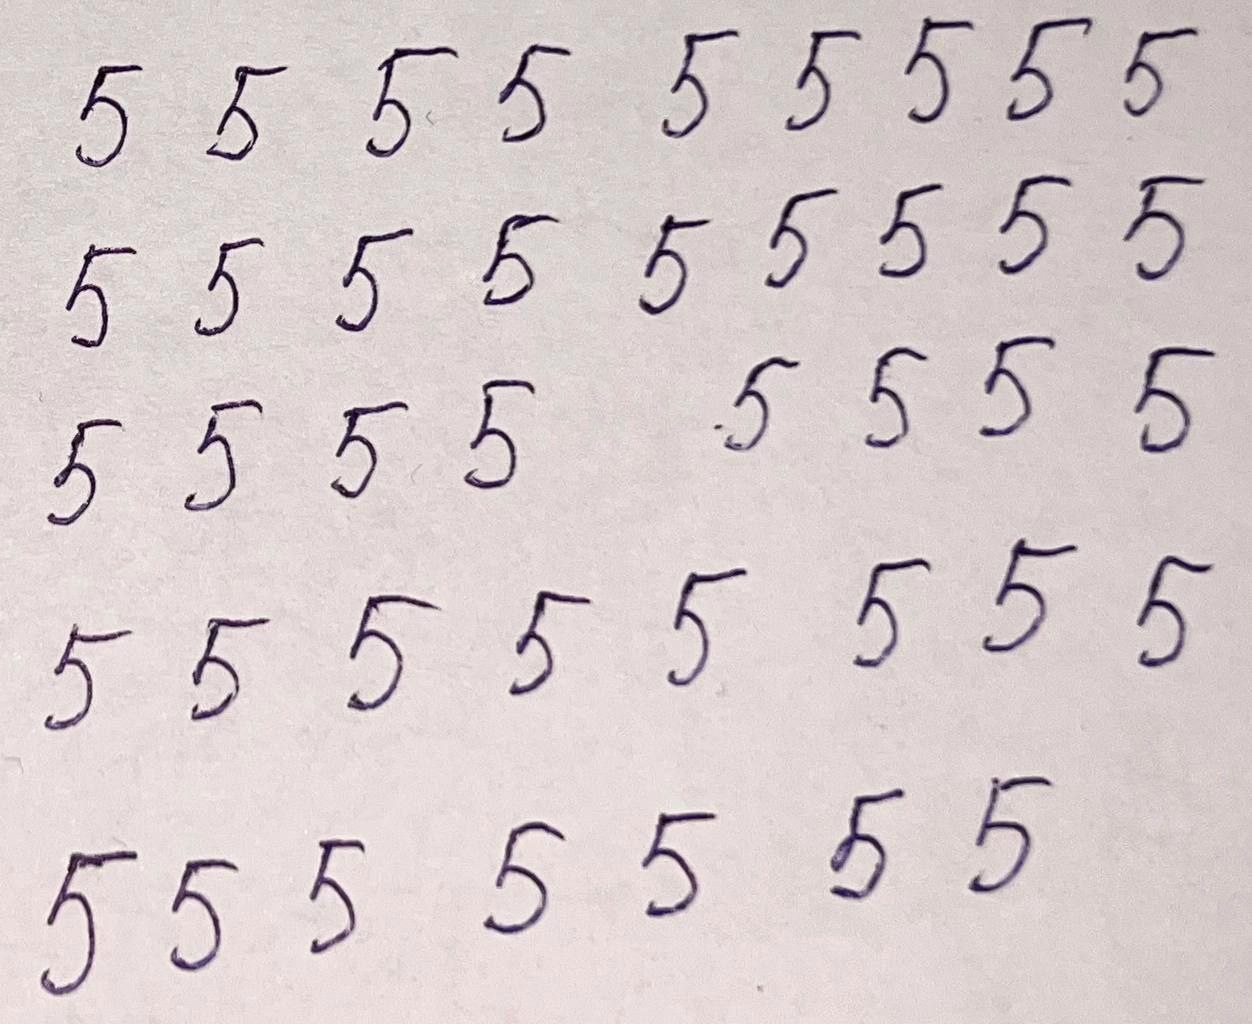 5 5 5 5 5 5 5 5 5
5 5 5 5 5 5 5 5 5
5 5 5 5 5 5 5 5
5 5 5 5 5 5 5 5
5 5 5 5 5 5 5